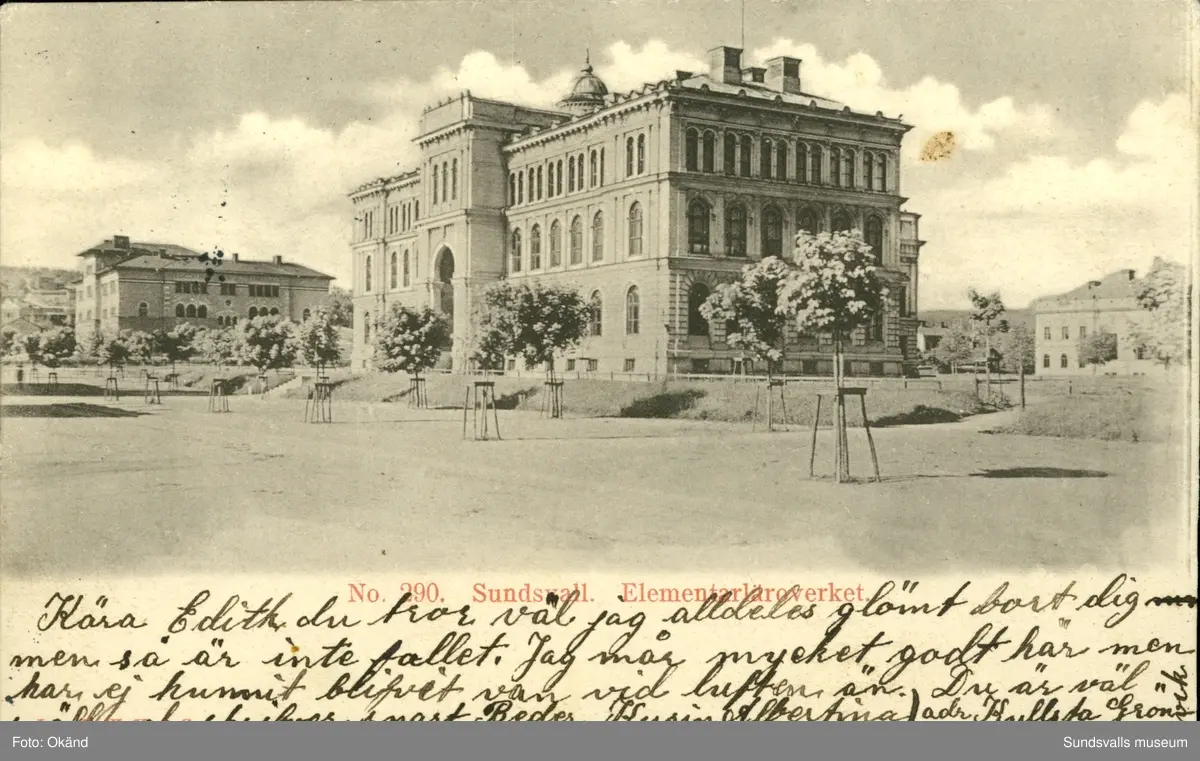 No. 290. Sundsvall. Elementarläroverket.
Kära Edith, du tror väl jag alldeles glömt bort dig
men så är inte fallet. Jag mår mycket godt här men
har ej kunnit blifvit van vid luften än. Du är väl
skrifver snart. Beder Kusin Albertina) adr. Kullsta Grönvik
Foto: Okänd
Sundsvalls museum